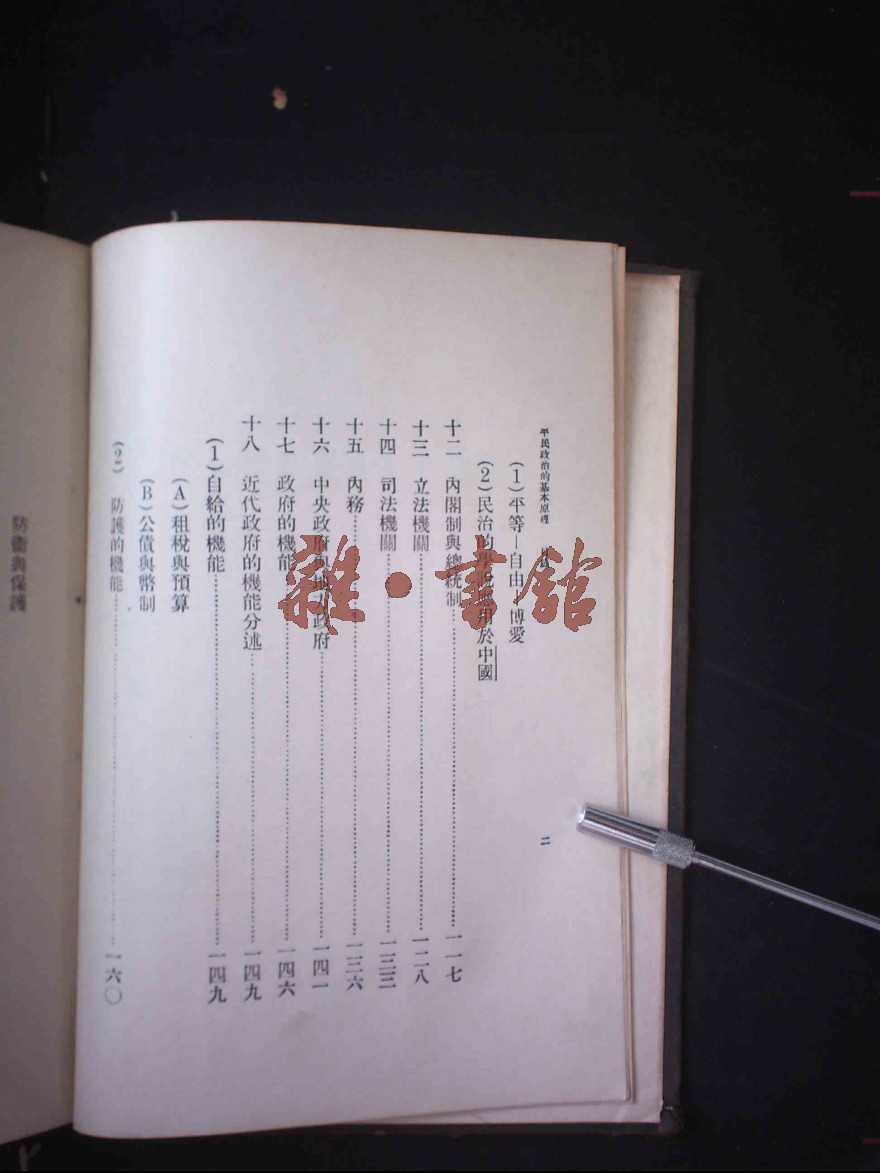 平民政治的基本原理 目錄 二
(1)平等—自由—博愛
(2)民治的學說應用於中國
十二 內閣制與總統制 一一七
十三 立法機關 一二八
十四 司法機關 一三三
十五 內務 一三六
十六 中央政府與地方政府 一四一
十七 政府的機能 一四六
十八 近代政府的機能分述 一四九
(1)自給的機能 一四九
(A)租稅與預算
(B)公債與幣制
(2) 防護的機能 一六〇
防衛與保護
雜·書館